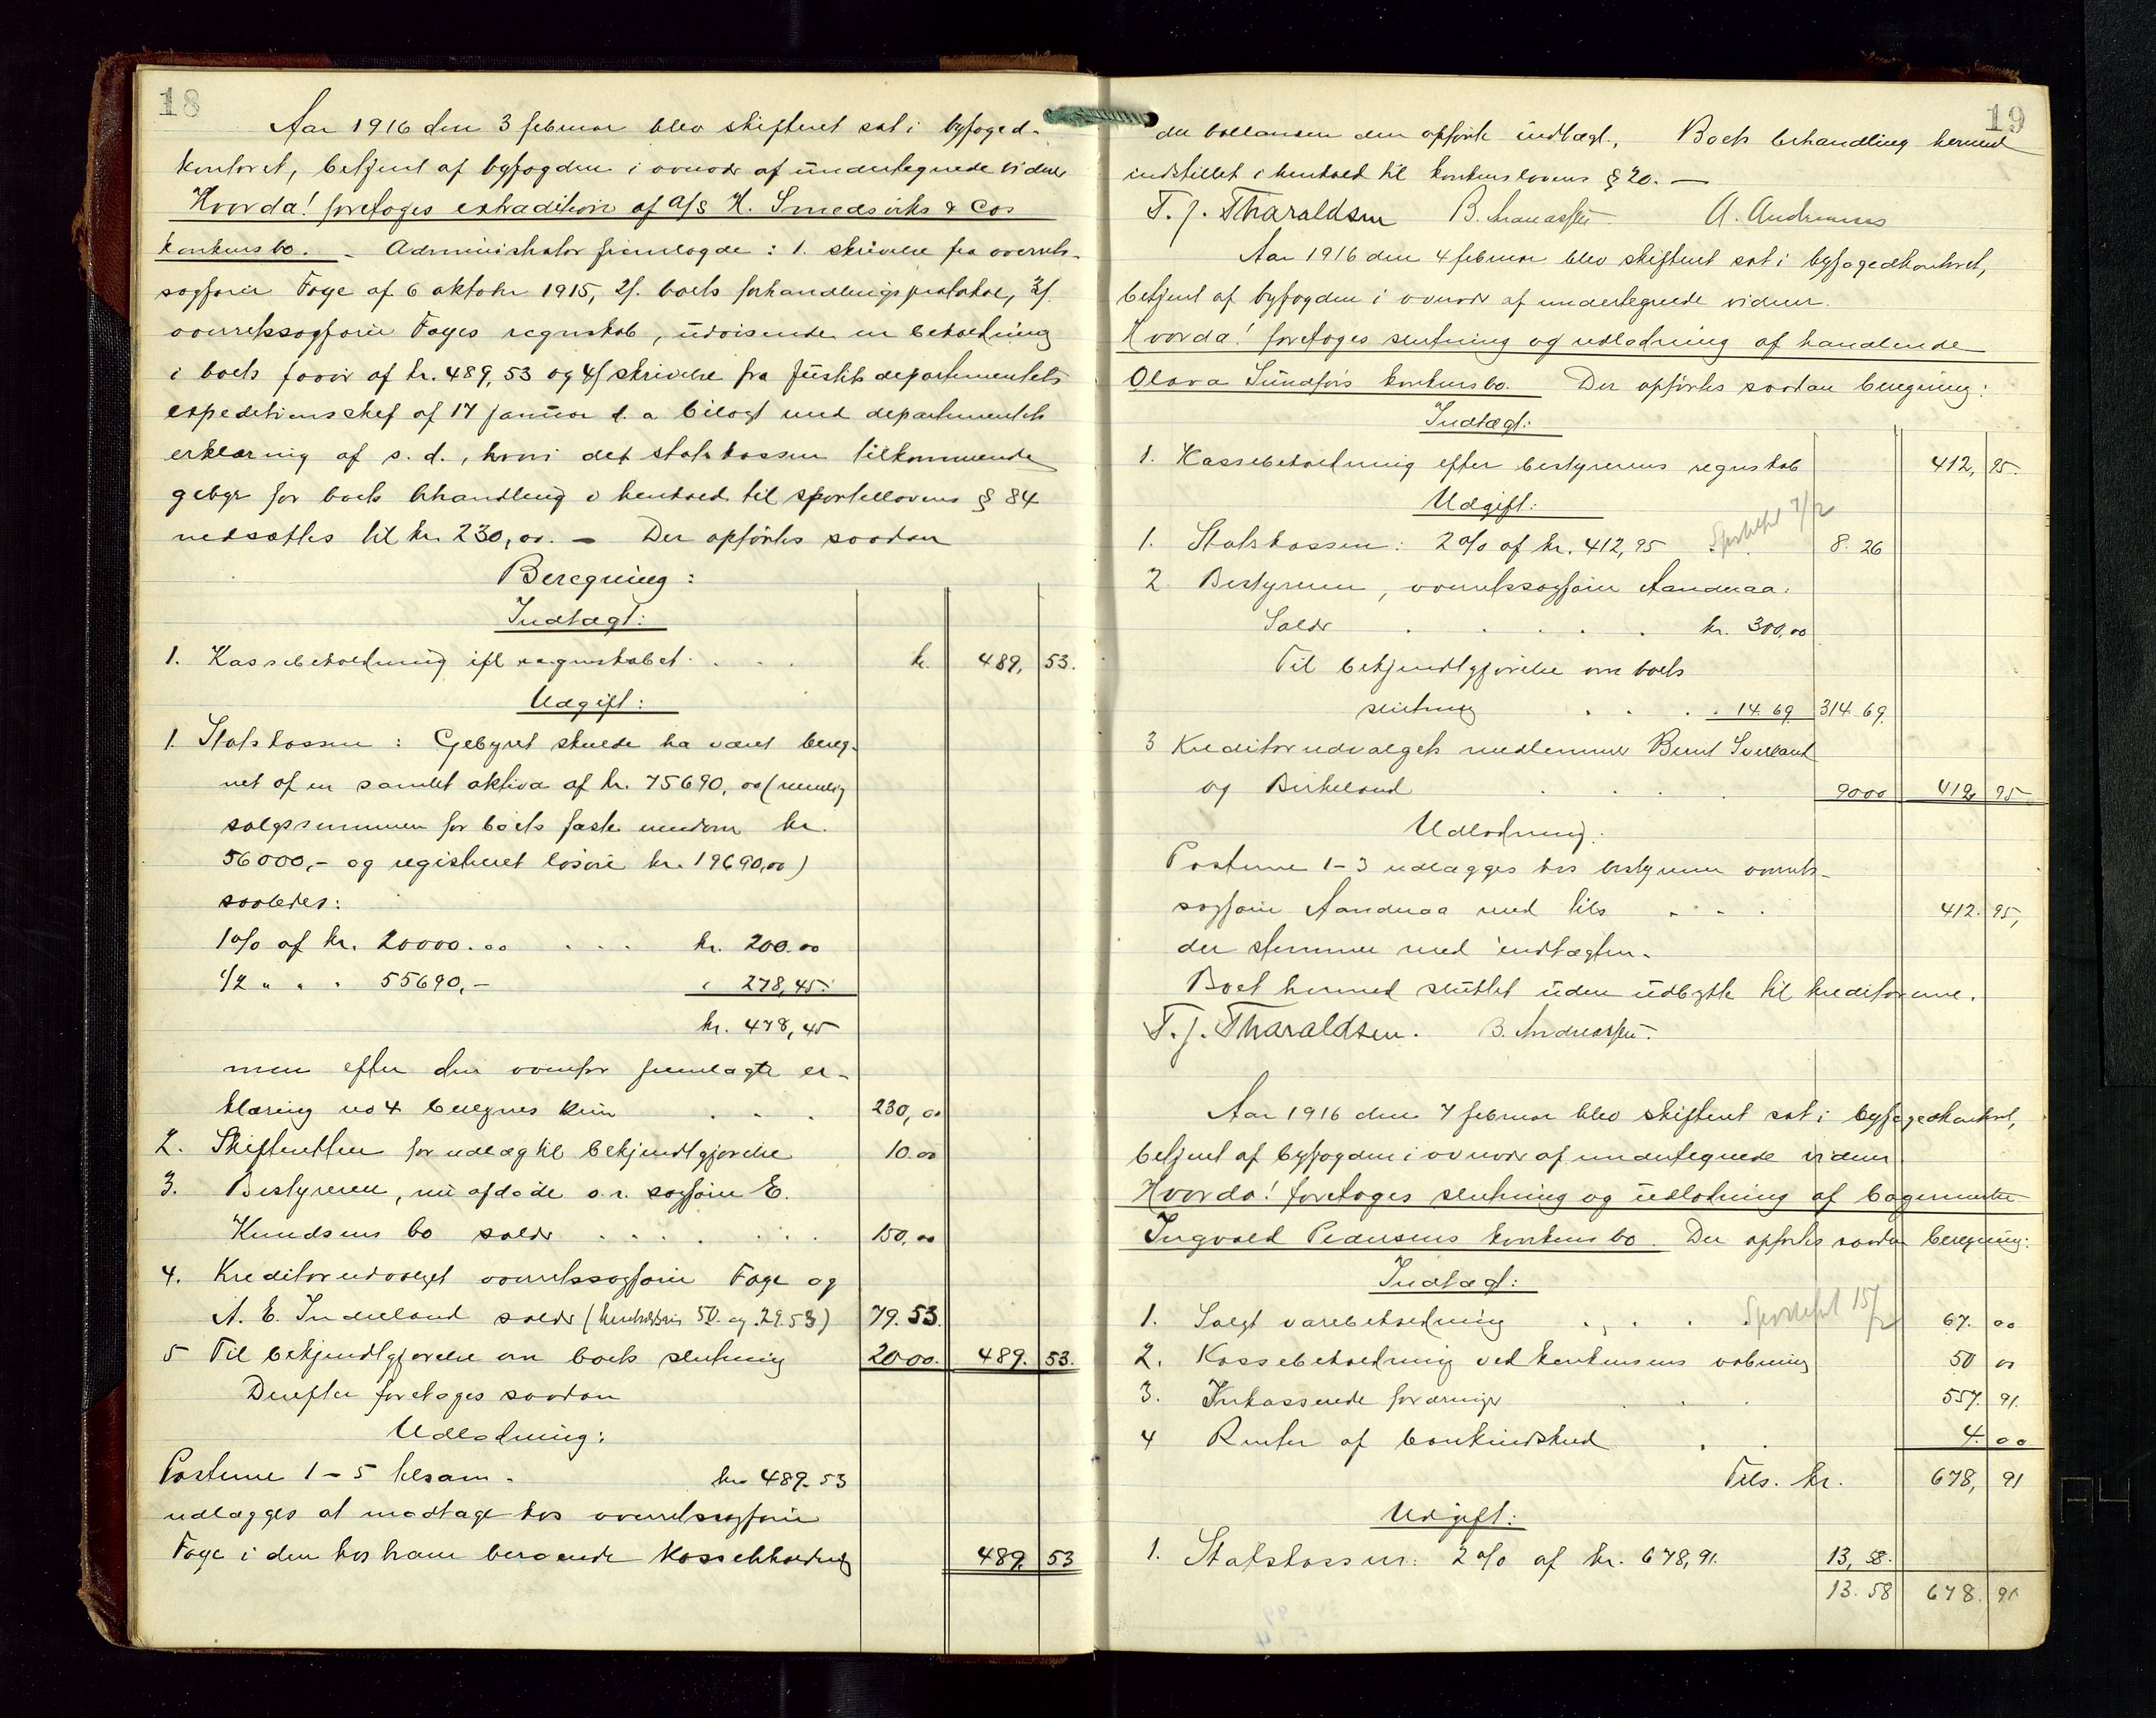 18
Aar 1916 den 3 februar blev skifteret sat i byfoged-
kontoret, betjent af byfogden i overvær af undertegnede vidner
Hvorda! foretoges extradition af A/S H. Smedsviks & Cos
konkursbo. - Administrator fremlagde: 1. skrivelse fra overrets-
sagfører Foge af 6 oktobr 1915, 2/. boets forhandlingsprotokol, 3/.
overretssagfører Foges regnskab, udvisende en beholdning
i boets favør af kr. 489,53 og 4/ skrivelse fra justitsdepartementets
expeditionschef af 17 januar d. a bilagt med departementets
erklæring af s. d., hvori det statskassen tilkommende
gebyr for boets behandling i henhold til sportellovens § 84
nedsættes til kr. 230,00. - Der opførtes saadan
Beregning:
Indtægt:
1. Kassebeholdning ifl regnskabet . . . kr. 489, 53.
Udgift:
1. Statskassen: Gebyret skulde ha været bereg-
net af en samlet aktiva af kr. 75690,00 (nemlig
salgssummen for boets faste eiendom kr.
56000,- og registreret løsøre kr. 19690,00)
saaledes:
1% af kr. 20000.00 . . . kr. 200.00
1/2 " " " 55690,- " 278,45.
kr. 478,45
men efter den ovenfor fremlagte er-
klæring no 4 beregnes kun . . . 230,00
2. Skifteretten for udlæg til bekjendtgjørelse 10.00
3. Bestyreren, nu afdøde o.r. sagfører E.
Knudsens bo salær . . . . . . 150,00
4. Kreditorudvalget overretssagfører Foge og
A. E. Indreland salær (henholdsvis 50. og 29.53) 79.53.
5 Til bekjendtgjørelse om boets slutning 2000. 489. 53.
Derefter foretoges saadan
Udlodning:
Posterne 1-5 tilsam. kr 489.53
udlægges at modtage hos overretssagfører
Foge i den hos ham beroende kassebeholdning 489. 53
19
der ballansen den opførte indtægt. Boets behandling hermed
indstillet i henhold til konkurslovens § 20. -
T. J. Tharaldsen B. Andreassen A. Andreassen
Aar 1916 den 4 februar blev skifteret sat i byfogedkontoret,
betjent af byfogden i overvær af undertegnede vidner.
Hvorda! foretoges slutning og udlodning af handlende
Olava Sundførs konkursbo. Der opførtes saadan beregning:
Indtægt:
1. Kassebeholdning efter bestyrerens regnskab 412, 95.
Udgift:
1. Statskassen: 2% af kr. 412,95 Sportelført 7/2 8. 26
2 Bestyreren, overretssagfører Aanduaa:
Salær . . . . . kr. 300,00
Til bekjendtgjørelse om boets
slutning . . . . 14.69 314.69
3 Kreditorudvalgets medlemmer Bernt Sverland
og Birkeland . . . . 9000 412, 95
Udlodning:
Posterne 1-3 udlægges hos bestyreren overrets-
sagfører Aanduaa med tils . . . 412. 95,
der stemmer med indtægten.
Boet hermed sluttet uden udbytte til kreditorerne.
T. J. Tharaldsen. B. Andreassen.
Aar 1916 den 7 februar blev skifteret sat i byfogedkontoret,
betjent af byfogden i overvær af undertegnede vidner
Hvorda! foretoges slutning og udlodning af bagermester
Ingvald Pedersens konkursbo. Der opførtes saadan beregning:
Indtægt:
1. Solgt varebeholdning . . . . Sportelført 15/2 67. 00
2. Kassebeholdning ved konkursens aabning 50 00
3. Inkasserede fordringer . . . 557. 91.
4 Renter af bankindskud . . 4. 00
Tils. kr. 678, 91
Udgift:
1. Statskassen: 2% af kr. 678,91. 13, 58.
13. 58 678. 91